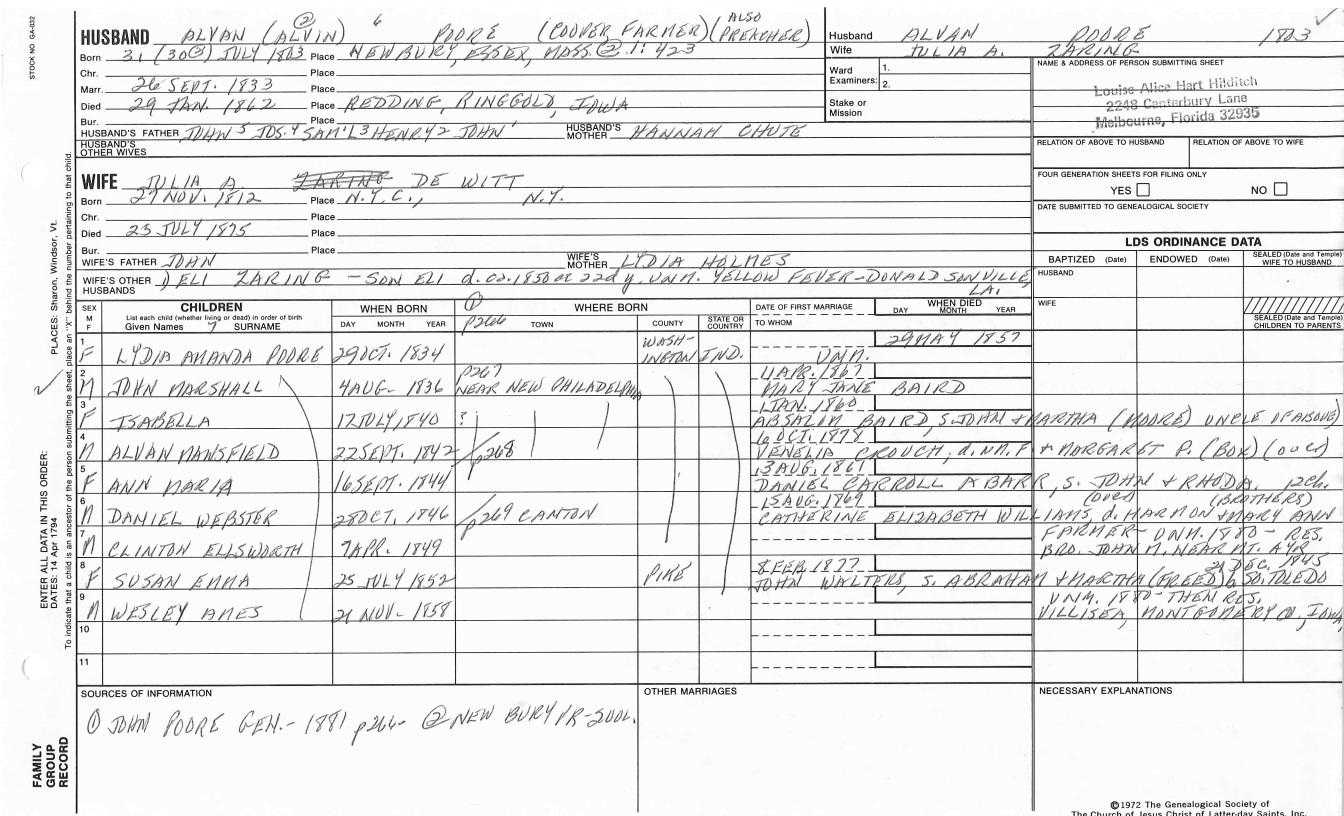 STOCK NO. GA-032
HUSBAND ALVAN (ALVIN ②) 6 POORE (COOPER FARMER) (ALSO PREACHER)
Born 31 (30②) JULY 1803 Place NEWBURY, ESSEX, MASS. ② 1:423
Chr. Place
Marr. 26 SEPT. 1833 Place
Died 29 JAN. 1862 Place REDDING, RINGGOLD, IOWA
Bur. Place
HUSBAND'S FATHER JOHN 5 JOS. 4 SAM'L 3 HENRY 2 JOHN 1 HUSBAND'S MOTHER HANNAH CHUTE
HUSBAND'S OTHER WIVES
WIFE JULIA A. ZARING DE WITT
Born 27 NOV. 1812 Place N.Y.C., N.Y.
Chr. Place
Died 23 JULY 1875 Place
Bur. Place
WIFE'S FATHER JOHN WIFE'S MOTHER LYDIA HOLMES
WIFE'S OTHER HUSBANDS 1) ELI ZARING - SON ELI d. ca. 1850 at 22dy. UNM. YELLOW FEVER - DONALDSONVILLE, LA.
Husband ALVAN POORE 1803
Wife JULIA A. ZARING
Ward Examiners: 1.
2.
Stake or Mission
NAME & ADDRESS OF PERSON SUBMITTING SHEET
Louise Alice Hart Hilditch
2248 Canterbury Lane
Melbourne, Florida 32935
RELATION OF ABOVE TO HUSBAND RELATION OF ABOVE TO WIFE
FOUR GENERATION SHEETS FOR FILING ONLY
YES NO
DATE SUBMITTED TO GENEALOGICAL SOCIETY
LDS ORDINANCE DATA
BAPTIZED (Date) ENDOWED (Date) SEALED (Date and Temple) WIFE TO HUSBAND
HUSBAND
WIFE
SEALED (Date and Temple) CHILDREN TO PARENTS
SEX M F
CHILDREN
List each child (whether living or dead) in order of birth
Given Names 7 SURNAME
WHEN BORN DAY MONTH YEAR
① p266 WHERE BORN TOWN COUNTY STATE OR COUNTRY
DATE OF FIRST MARRIAGE TO WHOM
WHEN DIED DAY MONTH YEAR
1 F LYDIA AMANDA POORE 29 OCT. 1834 WASHINGTON IND. UNM. 29 MAY 1857
2 M JOHN MARSHALL 4 AUG- 1836 p267 NEAR NEW PHILADELPHIA 11 APR. 1867 MARY JANE BAIRD
3 F ISABELLA 12 JULY 1840 ? 1 JAN. 1860 ABSALOM BAIRD, S. JOHN & MARTHA (MOORE) UNCLE OF ABOVE)
4 M ALVAN MANSFIELD 22 SEPT. 1842 p268 10 OCT. 1878 VENELIA CROUCH, d. WM. F & MARGARET P. (BOX) (over)
5 F ANN MARIA 16 SEPT. 1844 13 AUG. 1861 DANIEL CARROLL A BARR, S. JOHN & RHODA. 12ch.
(over) (BROTHERS)
6 M DANIEL WEBSTER 28 OCT. 1846 p269 CANTON 15 AUG. 1869 CATHERINE ELIZABETH WILLIAMS d. HARMON & MARY ANN
7 M CLINTON ELLSWORTH 7 APR. 1849 FARMER - UNM. 1880 - RES. BRO. JOHN M. NEAR MT. AYR
8 F SUSAN EMMA 25 JULY 1852 PIKE 8 FEB. 1877 JOHN WALTERS, S. ABRAHAM & MARTHA (FREED) b. SO. TOLEDO
9 M WESLEY AMES 21 NOV- 1858 UNM. 1880 - THEN RES. VILLISEA, MONTGOMERY CO, IOWA,
10
11
SOURCES OF INFORMATION
① JOHN POORE GEN. - 1881 p266- ② NEWBURY VR-2VOL.
OTHER MARRIAGES
NECESSARY EXPLANATIONS
PLACES: Sharon, Windsor, Vt.
ENTER ALL DATA IN THIS ORDER:
DATES: 14 Apr 1794
To indicate that a child is an ancestor of the person submitting the sheet, place an "X" behind the number pertaining to that child.
FAMILY GROUP RECORD
©1972 The Genealogical Society of
The Church of Jesus Christ of Latter-day Saints, Inc.